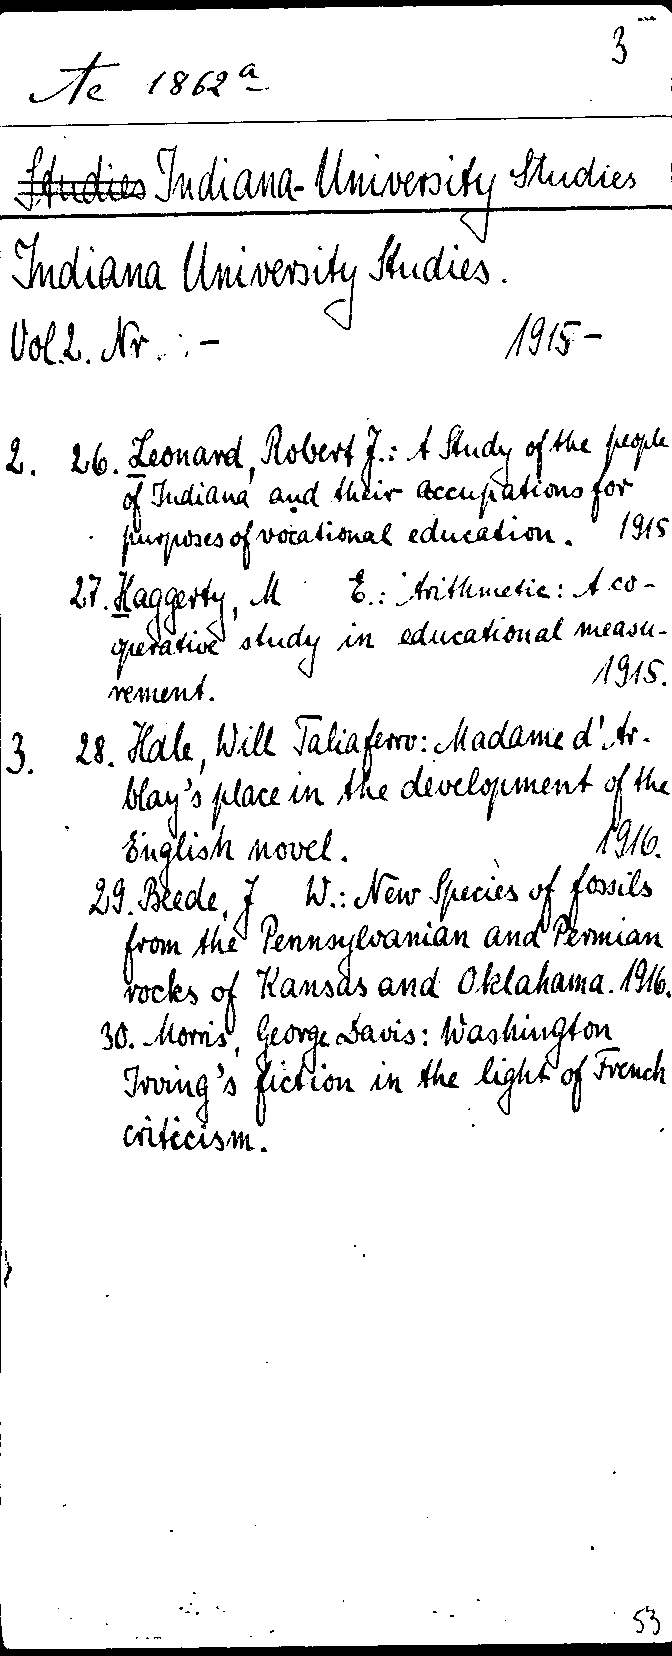 3
Ac 1862 a
Studies Indiana-University Studies
Indiana University Studies.
Vol. 2. Nr. : - 1915-
2. 26. Leonard, Robert J.: A Study of the people
of Indiana and their occupations for
purposes of vocational education. 1915
27. Haggerty, M E.: Arithmetic: A co-
operative study in educational measu-
rement. 1915.
3. 28. Hale, Will Taliaferro: Madame d'Ar-
blay's place in the development of the
English novel. 1916.
29. Beede, J W.: New Species of fossils
from the Pennsylvanian and Permian
rocks of Kansas and Oklahama. 1916.
30. Morris, George Davis: Washington
Irving's fiction in the light of French
criticism.
53